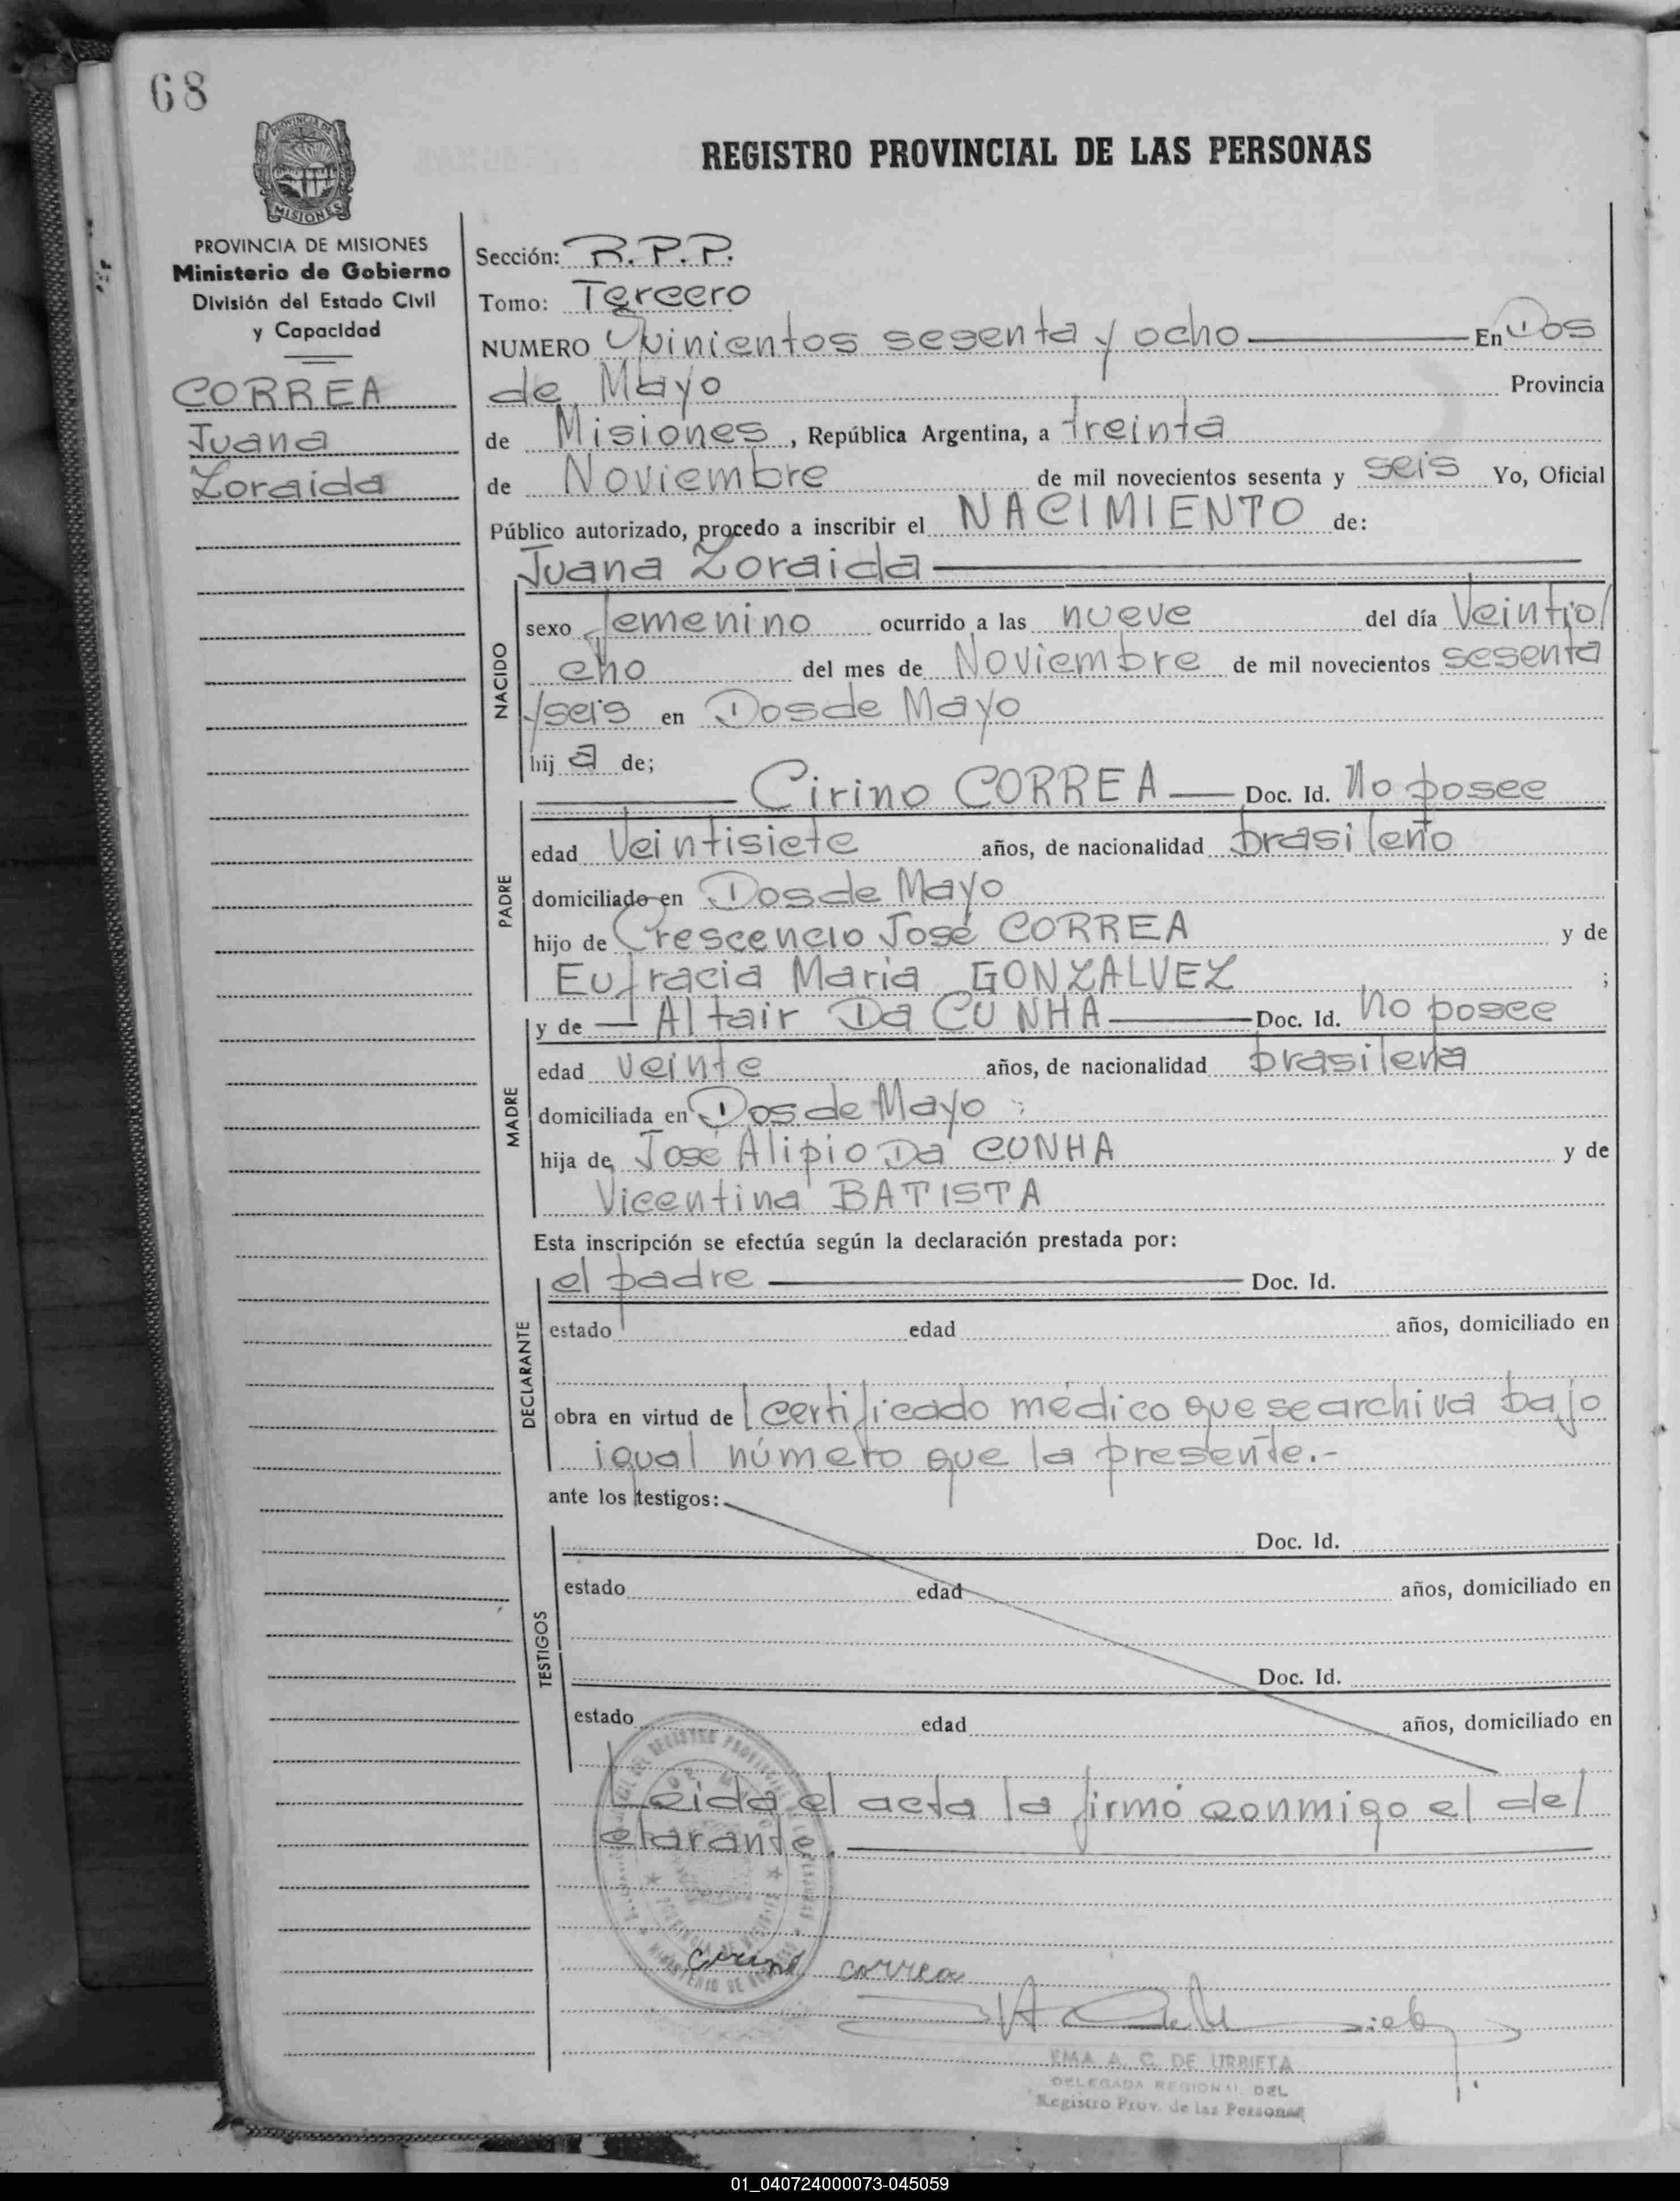 68
PROVINCIA DE
MISIONES
REGISTRO PROVINCIAL DE LAS PERSONAS
PROVINCIA DE MISIONES
Ministerio de Gobierno
División del Estado Civil
y Capacidad
CORREA
Juana
Zoraida
Sección: R.P.P.
Tomo: Tercero
NUMERO Quinientos sesenta y ocho En Dos
de Mayo Provincia
de Misiones, República Argentina, a treinta
de Noviembre de mil novecientos sesenta y seis Yo, Oficial
Público autorizado, procedo a inscribir el NACIMIENTO de:
Juana Zoraida
NACIDO
sexo femenino ocurrido a las nueve del día Veintio/
cho del mes de Noviembre de mil novecientos sesenta
y seis en Dos de Mayo
hij a de;
PADRE
Cirino CORREA Doc. Id. No posee
edad Veintisiete años, de nacionalidad brasileño
domiciliado en Dos de Mayo
hijo de Crescencio José CORREA y de
Eufracia Maria GONZALVEZ ;
MADRE
y de Altair Da CUNHA Doc. Id. No posee
edad veinte años, de nacionalidad brasileña
domiciliada en Dos de Mayo
hija de José Alipio Da CUNHA y de
Vicentina BATISTA
Esta inscripción se efectúa según la declaración prestada por:
DECLARANTE
el padre Doc. Id.
estado edad años, domiciliado en
obra en virtud de certificado médico que se archiva bajo
igual número que la presente.-
ante los testigos:
TESTIGOS
Doc. Id.
estado edad años, domiciliado en
Doc. Id.
estado edad años, domiciliado en
Leida el acta la firmó conmigo el de/
clarante.
cirino correa
EMA A. C. DE URRIETA
DELEGADA REGIONAL DEL
Registro Prov. de las Personas
01_040724000073-045059